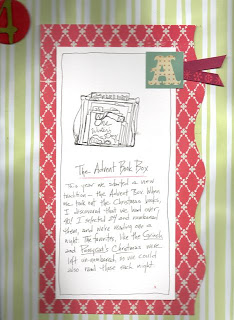 4
A
The Advent Book Box
This year we started a new
tradition – the Advent Box. When
we took out the Christmas books,
I discovered that we had over
40! I selected 24 and numbered
them, and we're reading one a
night. The favorites, like the Grinch
and Christmas were
left un-numbered so we could
also read those each night.